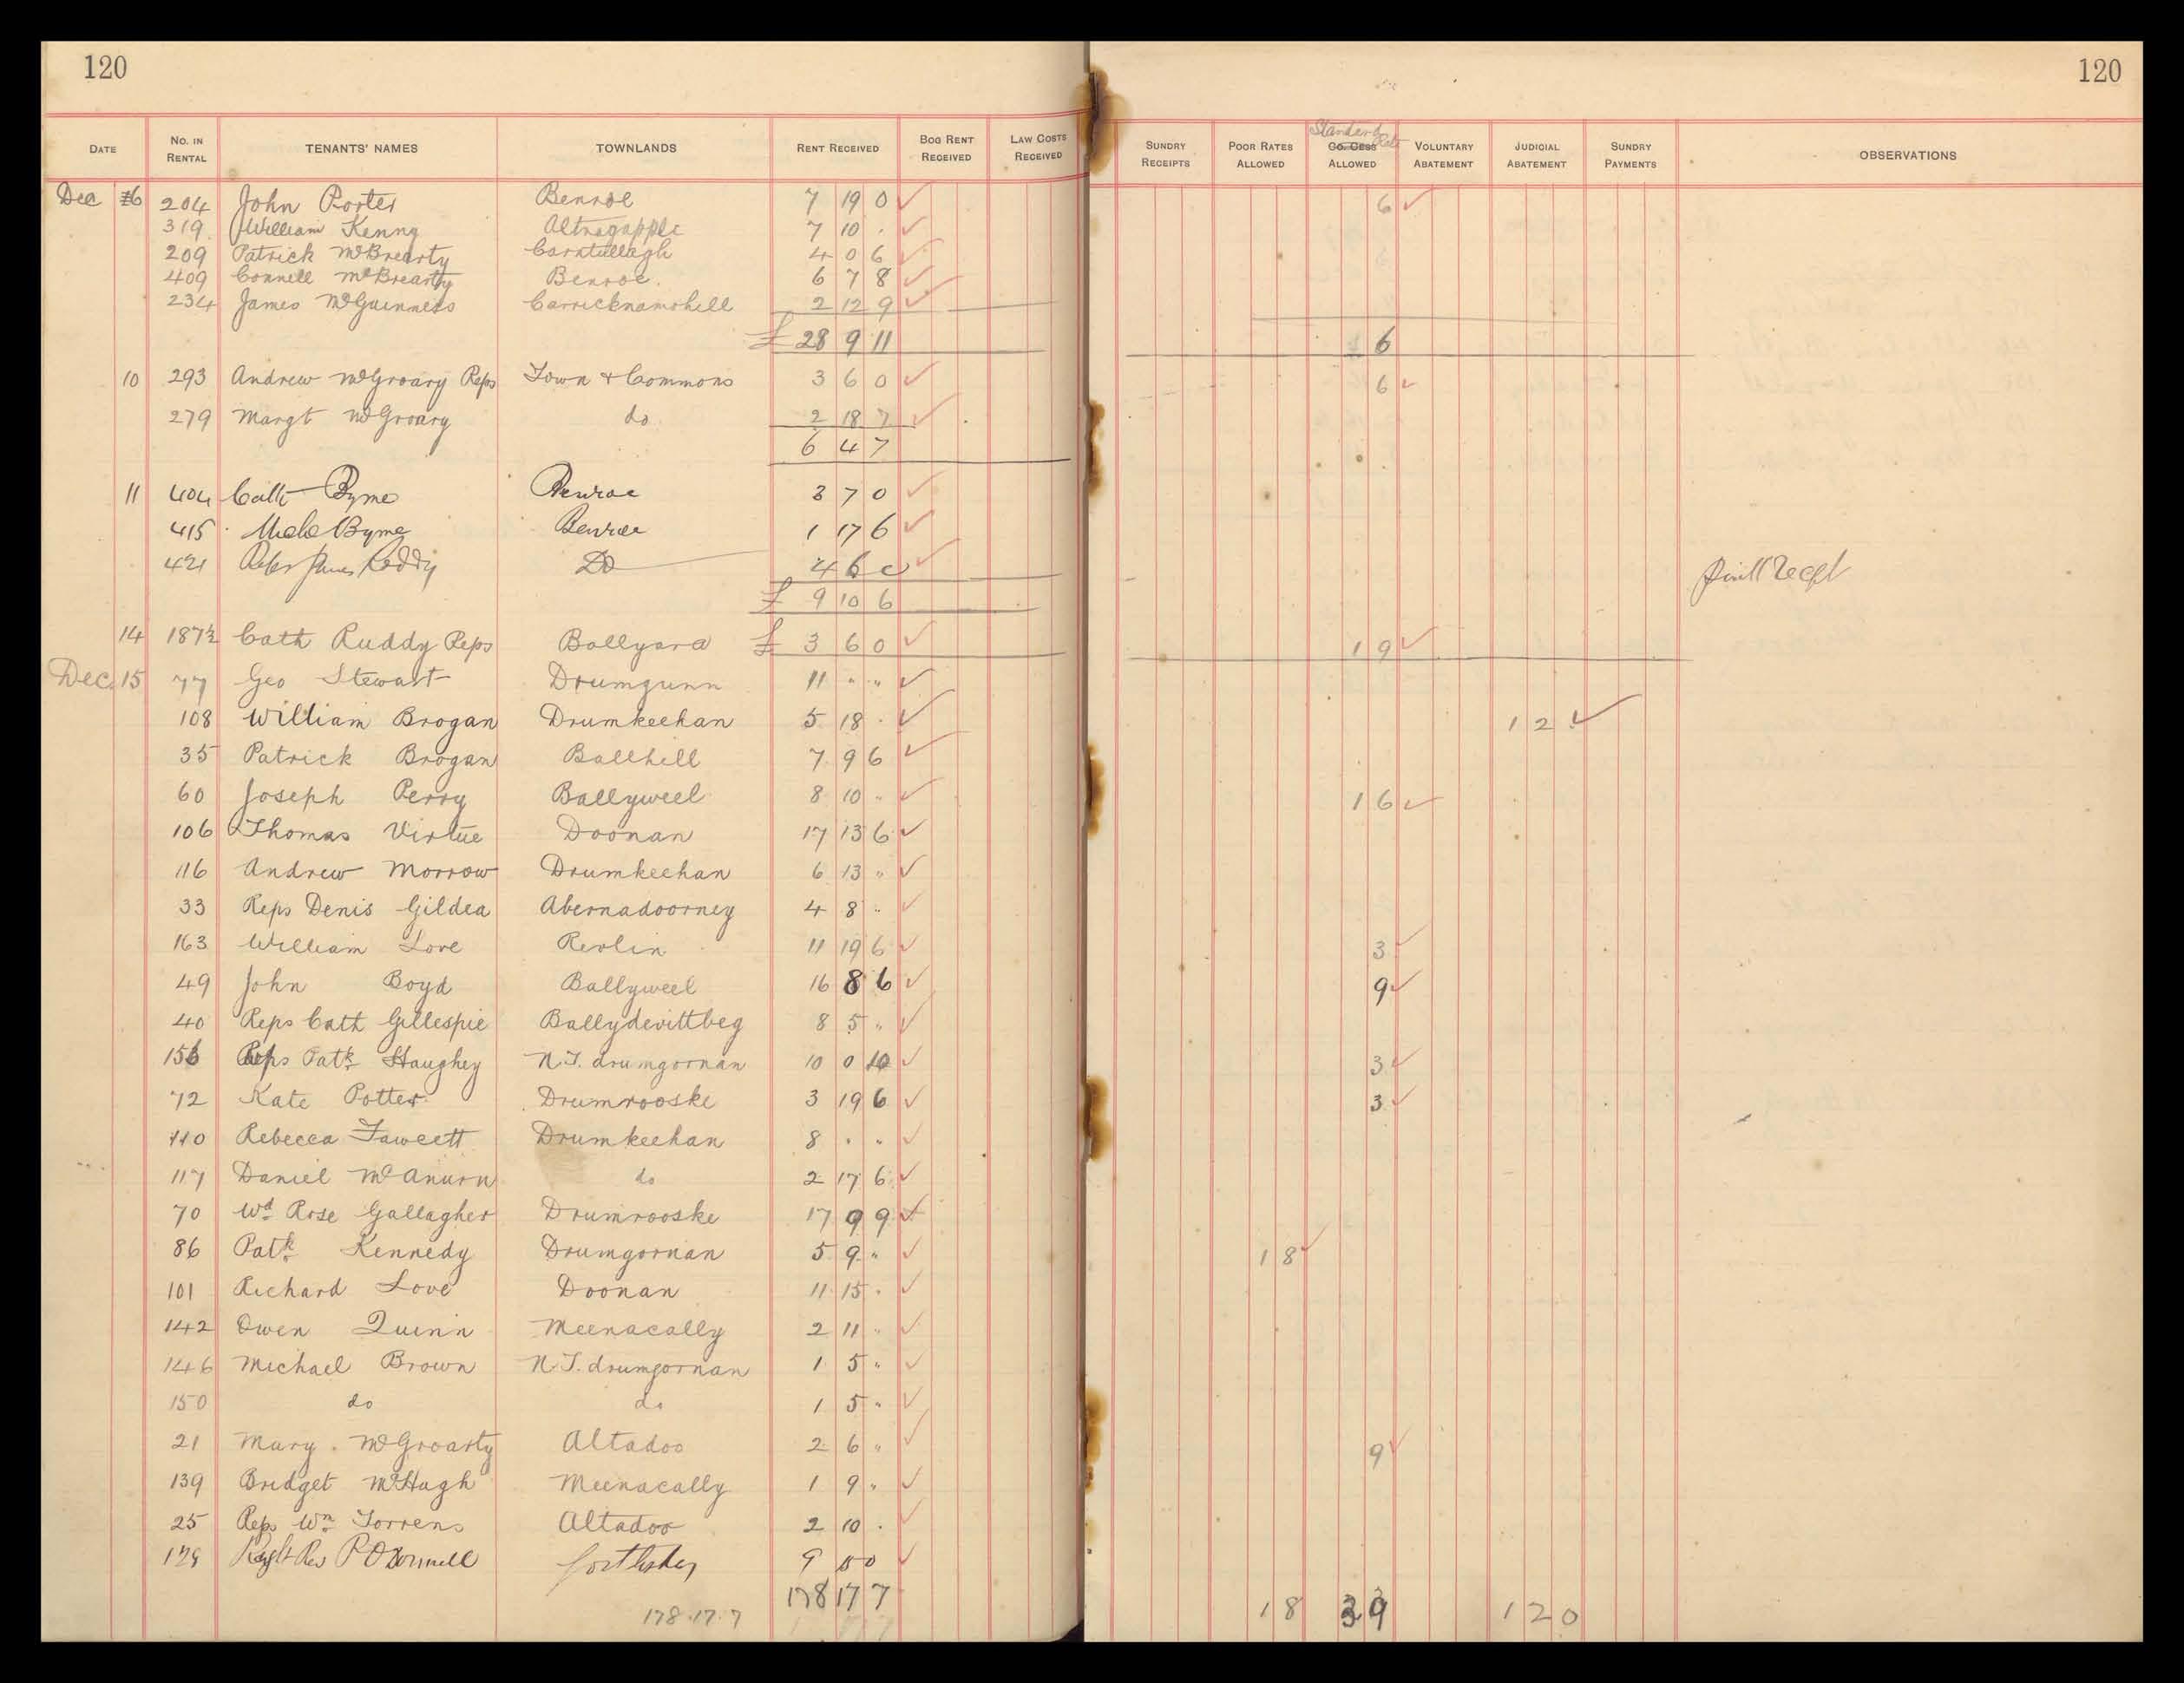 120 120
DATE NO. IN RENTAL TENANTS' NAMES TOWNLANDS RENT RECEIVED BOG RENT RECEIVED LAW COSTS RECEIVED SUNDRY RECEIPTS POOR RATES ALLOWED Standard Rate CO. CESS ALLOWED VOLUNTARY ABATEMENT JUDICIAL ABATEMENT SUNDRY PAYMENTS OBSERVATIONS
Dec 6 204 John Porter Benroe 7 19 0 6
319 William Kenny Altnagapple 7 10 .
209 Patrick McBrearty Corntullagh 4 0 6
409 Connell McBrearty Benroe. 6 7 8
234 James McGuinness Carricknamohill 2 12 9
£ 28 9 11 6
10 293 Andrew McGroary Reps Town & Commons 3 6 0 6
279 Margt McGroary do 2 18 7
6 4 7
11 404 Cath Byrne Benroe 3 7 0
415 Byrne Benroe 1 17 6
421 James Do 4 6 0
£ 9 10 6
14 187½ Cath Ruddy Reps Ballyara £ 3 6 0 1 9
Dec. 15 77 Geo Stewart Drumgunn 11 " "
108 William Brogan Drumkeehan 5 18 . 1 2 .
35 Patrick Brogan Ballhill 7 9 6
60 Joseph Perry Ballyweel 8 10 " 1 6
106 Thomas Virtue Doonan 17 13 6
116 Andrew Morrow Drumkeehan 6 13 "
33 Reps Denis Gildea Abernadoorney 4 8 "
163 William Love Revlin 11 19 6 3
49 John Boyd Ballyweel 16 8 6 9
40 Reps Cath Gillespie Ballydevittbeg 8 5 "
156 Reps Patk Haughey N.T. drumgornan 10 0 10 3
72 Kate Potter Drumrooske 3 19 6 3
110 Rebecca Fawcett Drumkeehan 8 . "
117 Daniel McAnurn do 2 17 6
70 Wd Rose Gallagher Drumrooske 17 9 9
86 Patk Kennedy Drumgornan 5 9 " 1 8
101 Richard Love Doonan 11 15 .
142 Owen Quinn Meenacally 2 11 "
146 Michael Brown N.T. drumgornan 1 5 "
150 do do 1 5 "
21 Mary McGroarty Altadoo 2 6 " 9
139 Bridget McHugh Meenacally 1 9 "
25 Reps Wm Torrens Altadoo 2 10 .
Right Rev P O'Donnell 9
178 17 7
178.17.7 1 8 1 2 0